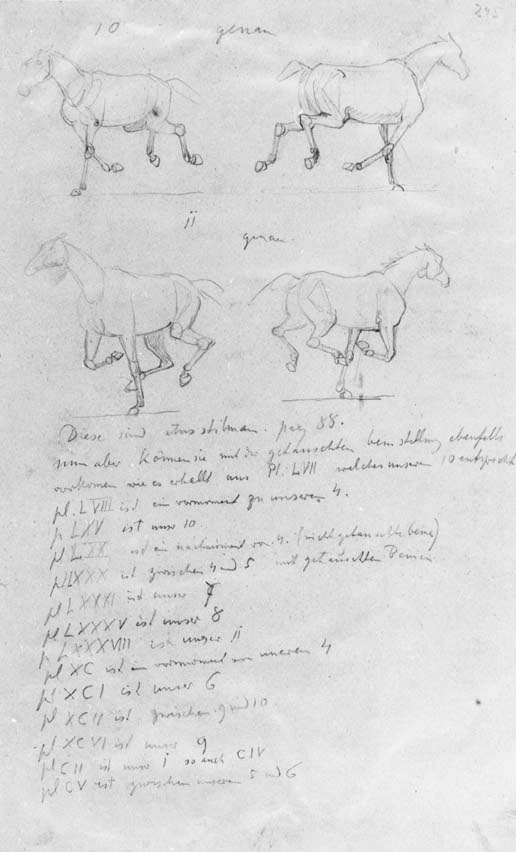 295
10 genau
ii
genau.
Diese sind etwas stilman. pag 88.
nun aber können sie mit der getauschten beinstellung ebenfalls
vorkomen wie es erhellt aus Pl. LVII welches unserem 10 entspricht
pl. LVIII ist ein vormoment zu unserem 4.
p LXV ist unser 10
pl ist ein nachmoment von 4. (nicht getauschte beine)
pl LXXX ist zwischen 4 und 5 mit getauschten Beinen
pl LXXXI ist unser 7
pl. LXXXV ist unser 8
p LXXXVIII ist unser ii
pl XC ist ein vormoment von unserem 4
pl XCI ist unser 6
pl XCII ist zwischen 9 und 10.
pl XCVI ist unser 9
pl CII ist unser i so auch CIV
pl CV ist zwischen unserem 5 und 6